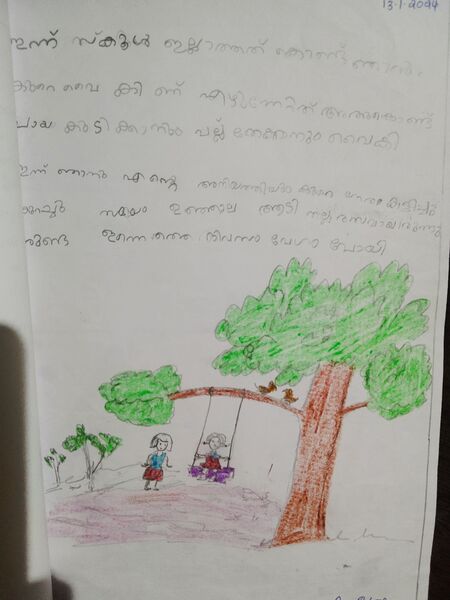 13.1.2024
ഇന്ന് സ്കൂൾ ഇല്ലാത്തത് കൊണ്ട് ഞാൻ
കുറെ വൈ കി ണ് എഴിന്നേറ്റത് അതുകൊണ്ട്
ചായ കുടിക്കാനും പല്ല് തേക്കാനും വൈകി
ഇന്ന് ഞാനും എന്റെ അനിയത്തിയും കുറെ നേരം കളിച്ചു
കുറച്ചു സമയം ഊഞ്ഞാല ആടി നല്ല രസമായിരുന്നു
ഇന്നെത്തെ ദിവസം വേഗം പോയി